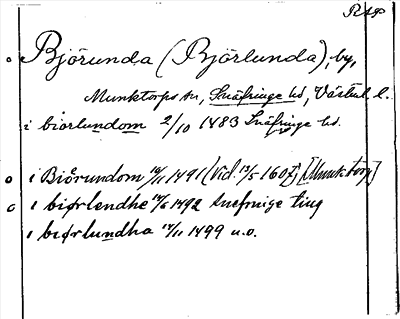 RAp
Björunda (Björlunda), by,
Munktorps sn, Snäfringe hd, Västml. l.
i biorlundom 2/10 1483 Snäfringe hd.
i Biörundom 1491 (Vid. 1607) [Munktorp]
i biørlendhe 1492 snefringe ting
i biørlundha 1499 u.o.